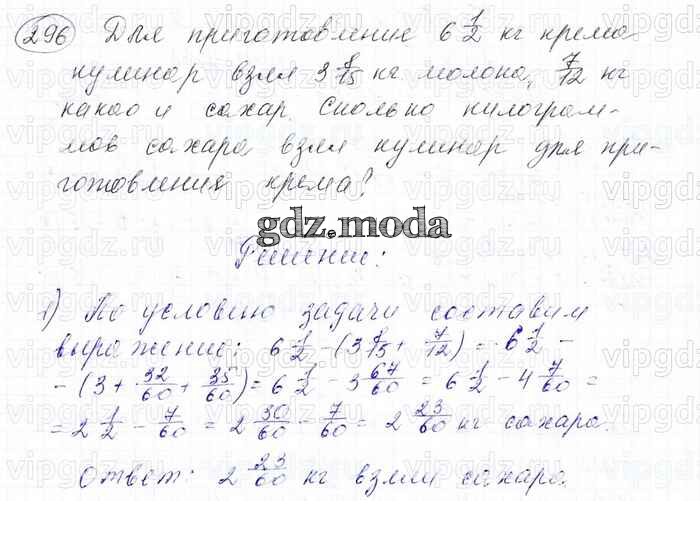 296 Для приготовление 6 1/2 кг крема
кулинар взял 3 8/15 кг молока, 7/12 кг
какао и сахар. Сколько килограм-
мов сахара взял кулинар для при-
готовления крема?
gdz.moda
Решение:
1) По условию задачи составим
выражение: 6 1/2 - (3 8/15 + 7/12) = 6 1/2 -
- (3 + 32/60 + 35/60) = 6 1/2 - 3 67/60 = 6 1/2 - 4 7/60 =
= 2 1/2 - 7/60 = 2 30/60 - 7/60 = 2 23/60 кг сахара.
Ответ: 2 23/60 кг взяли сахара.